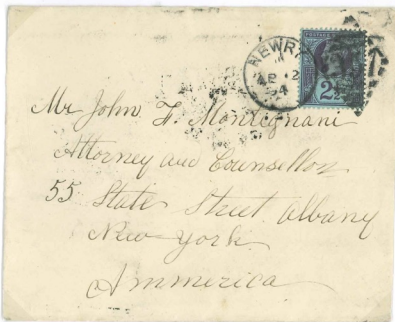 NEWRY
AP 2
94
2½
Mr John F. Montignani
Attorney and Counsellor
55 State Street Albany
New York
Ammerica